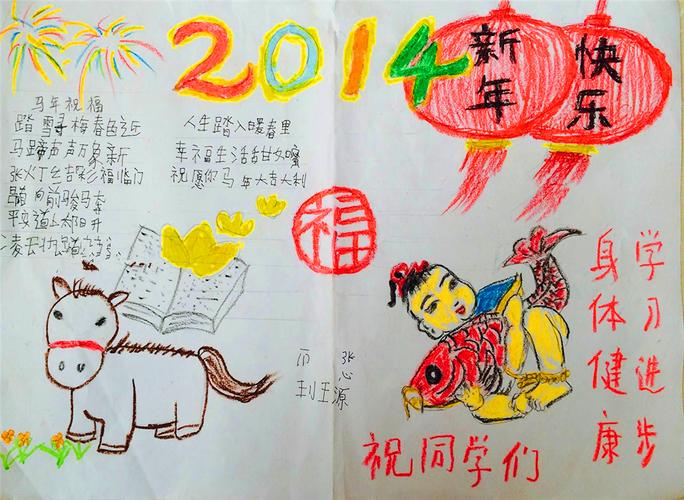 2014
新年
快乐
马年祝福
踏雪寻梅春近
马蹄声声万象新
张灯结彩福临门
向前骏马奔
平安道上太阳升
凌云壮踏
人生踏入暖春里
幸福生活甜如蜜
祝愿你马年大吉大利
福
张心源
祝同学们
学习进步
身体健康